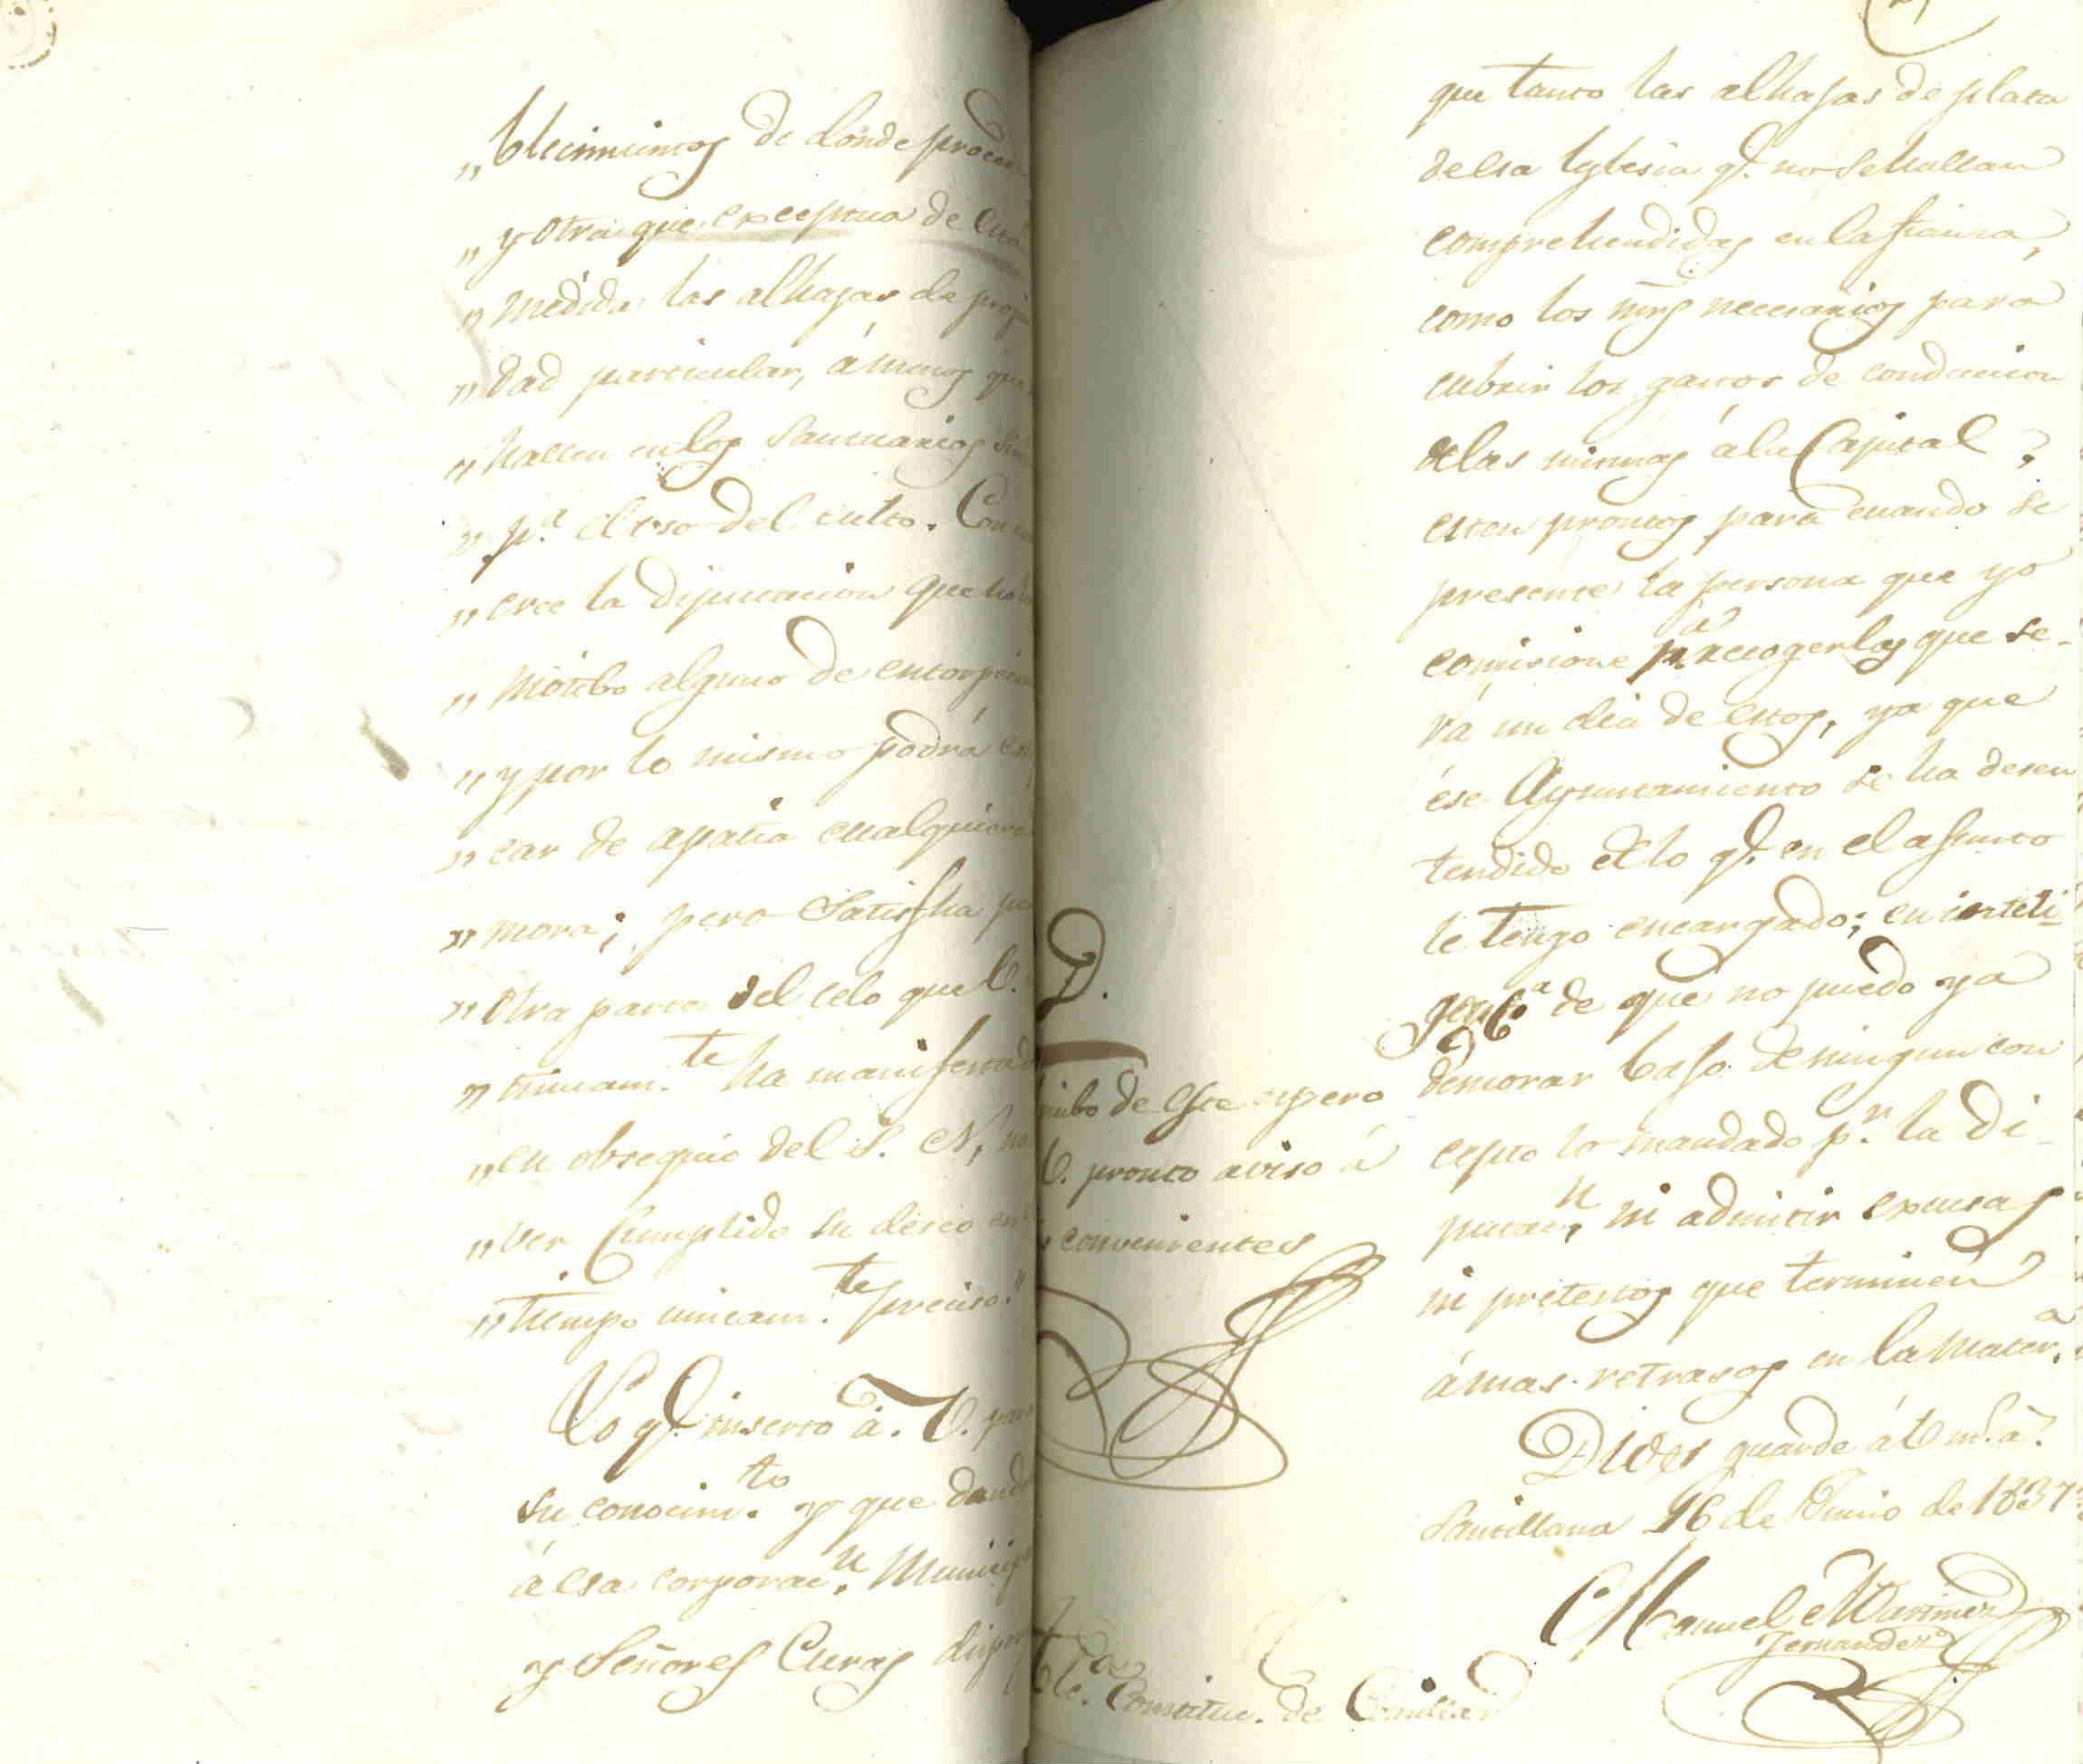 „ blecimientos de donde proce
„ y otra que exceptua de esta
„ medida las alhajas de prop
„ dad particular, á menos que
„ hallen en los Santuarios sir
„ p.ª el uso del culto. Con
„ cree la Diputacion que no
„ motibo alguno de entorpecim
„ y por lo mismo podrá
„ car de apatia cualquiera
„ mora; pero Satisfha por
„ otra parte del celo que V.
„ tinuam.te ha manifestado
„ en obsequio del S. N,
„ ver Cumplido su deseo en
„ tiempo unicam.te preciso."
Lo q.e inserto á V. para
su conocim.to y que dando
á esa corporac.n Municip
y Señores Curas dispon
D.
cibo de este espero
V. pronto aviso á
convenientes
Alc.e Constituc. de Comillas
que tanto las alhajas de plata
de esa Yglesia q.e no se hallan
comprehendidas en la fianza,
como los mrs necesarios para
cubrir los gastos de conduccion
de las mismas á la Capital,
esten prontos para cuando se
presente la persona que yo
comisione p.a recogerlas que se-
rá un dia de estos, ya que
ese Ayuntamiento se ha desen
tendido de lo q.e en el asunto
le tengo encargado; en inteli-
gencia de que no puedo ya
demorar bajo de ningun con
cepto lo mandado p.r la Di-
putac.n, ni admitir excusas
ni pretestos que terminen
á mas retrasos en la mater.a
Dios guarde á V m.s a.s
Santillana 16 de Junio de 1837
Manuel Martinez
Fernandez